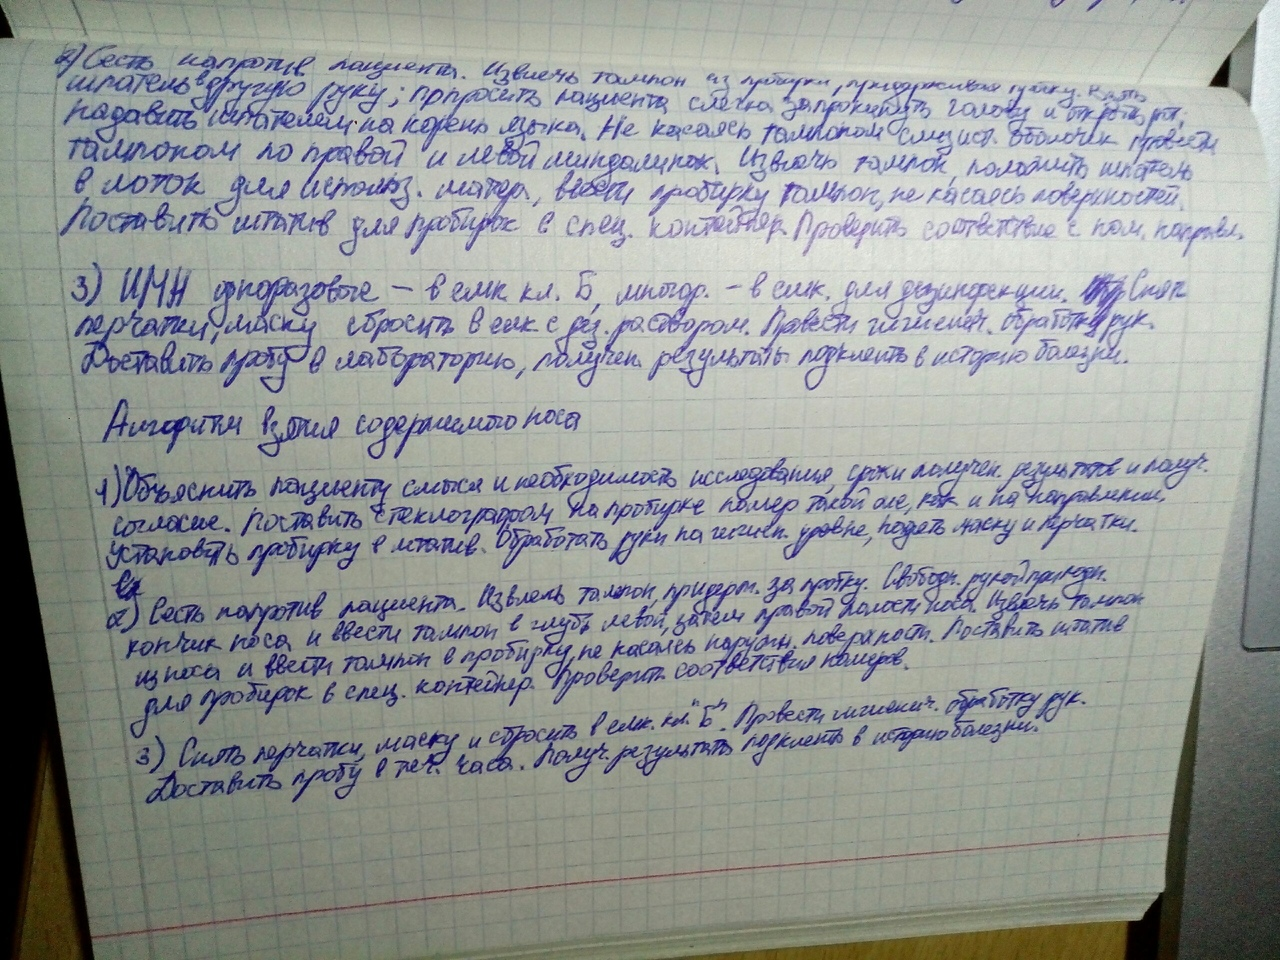 2) Сесть напротив пациента. Извлечь тампон из пробирки, придерживая пробку. Взять
шпатель в другую руку; попросить пациента слегка запрокинуть голову и открыть рот,
надавить шпателем на корень языка. Не касаясь тампоном слизист. оболочек провести
тампоном по правой и левой миндалинам. Извлечь тампон, положить шпатель
в лоток для использ. матер., ввести пробирку тампон, не касаясь поверхностей.
Поставить штатив для пробирок в спец. контейнер. Проверить соответствие с ном. направл.
3) ИМН одноразовые – в емк. кл. Б, многор. – в емк. для дезинфекции. Снять
перчатки, маску сбросить в емк с дез. раствором. Провести гигиенич. обработку рук.
Доставить пробу в лабораторию, получен. результаты подклеить в историю болезни.
Алгоритм взятия содержимого носа
1) Объяснить пациенту смысл и необходимость исследования, сроки получен. результатов и получ.
согласие. Поставить стеклографом на пробирке номер такой же, как и на направлении.
Установить пробирку в штатив. Обработать руки на гигиен. уровне, надеть маску и перчатки.
2) Сесть напротив пациента. Извлечь тампон, придерж. за пробку. Свободн. рукой приподн.
кончик носа и ввести тампон в глубь левой, затем правой полости носа. Извлечь тампон
из носа и ввести тампон в пробирку, не касаясь наружн. поверхности. Поставить штатив
для пробирок в спец. контейнер. Проверить соответствия номеров.
3) Снять перчатки, маску и сбросить в емк. кл. "Б". Провести гигиенич. обработку рук.
Доставить пробу в теч. часа. Получ. результать подклеить в историю болезни.